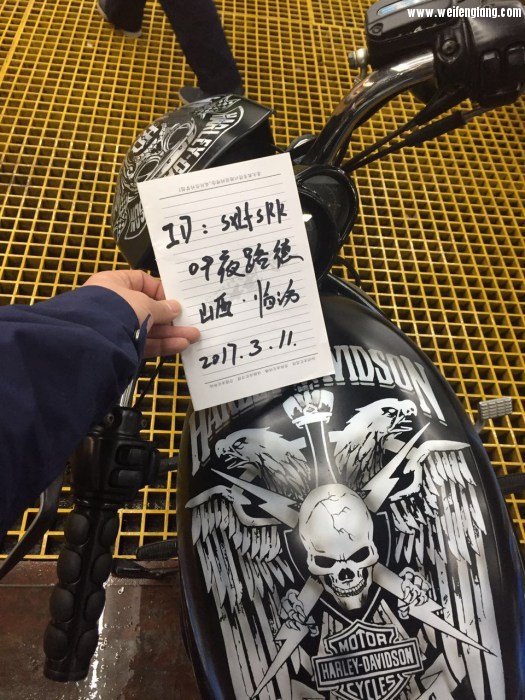 www.weifengtang.com
ID: sxlfskk
09夜路德
山西·临汾
2017.3.11.
HARLEY-DAVIDSON
MOTOR
HARLEY-DAVIDSON
CYCLES